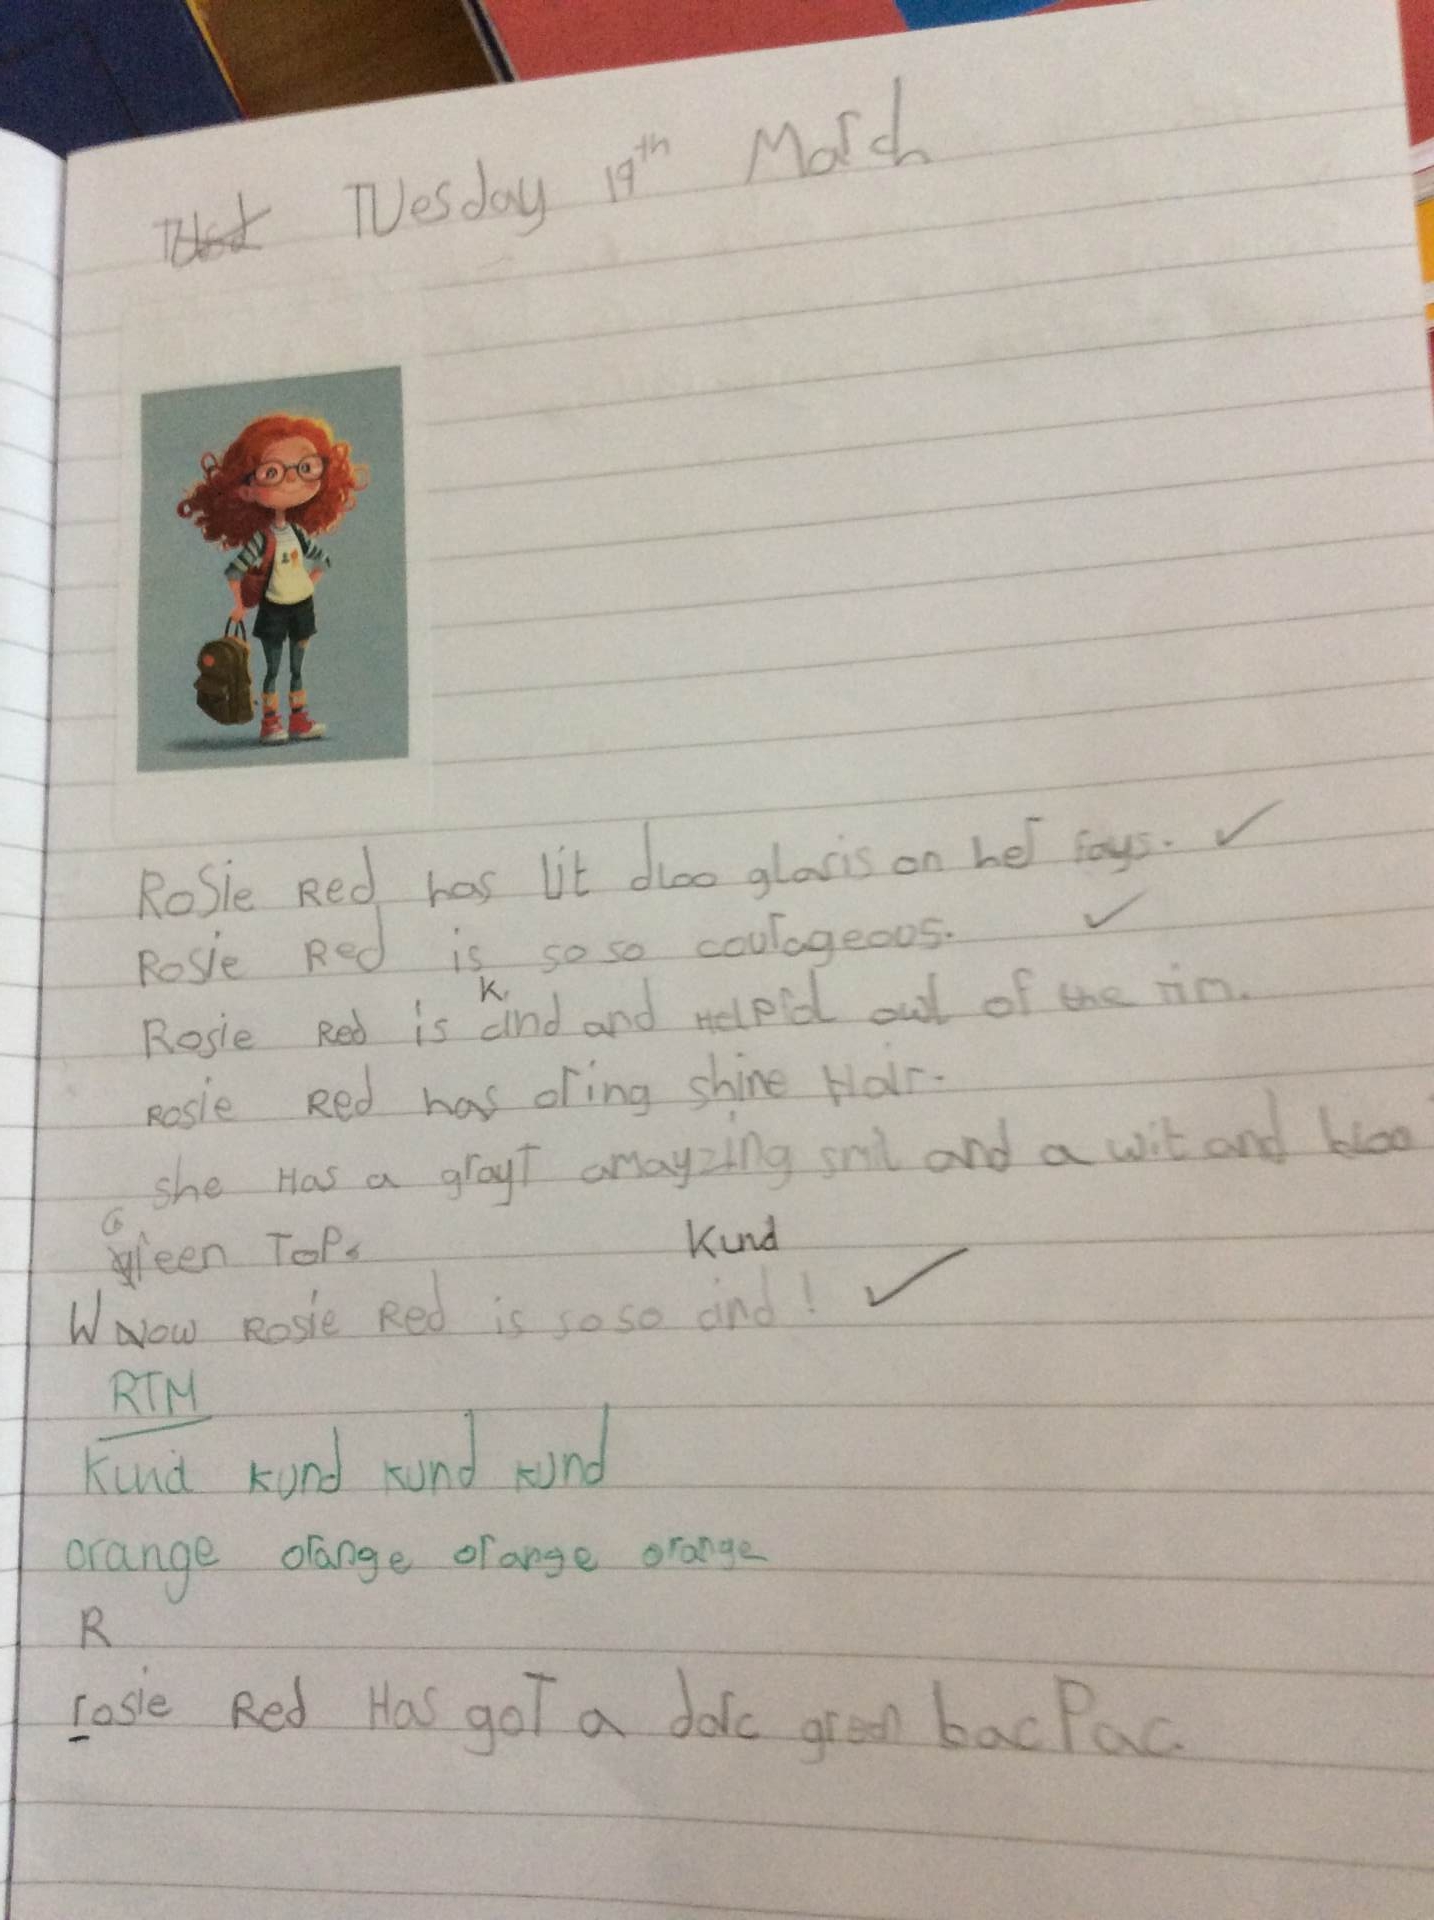 Tuesday 19th March
Rosie Red has lit bloo glasis on her fays.
Rosie Red is so so courageous.
k
Rosie Red is cind and Helpid owt of the rin.
Rosie Red has oring shine Hair.
she Has a grayt amayzing smil and a wit and bloo
G
green Top.
Kind
W Wow Rosie Red is so so cind!
RTM
Kind kind kind kind
orange orange orange orange
R
rosie Red Has got a darc green bacPac.